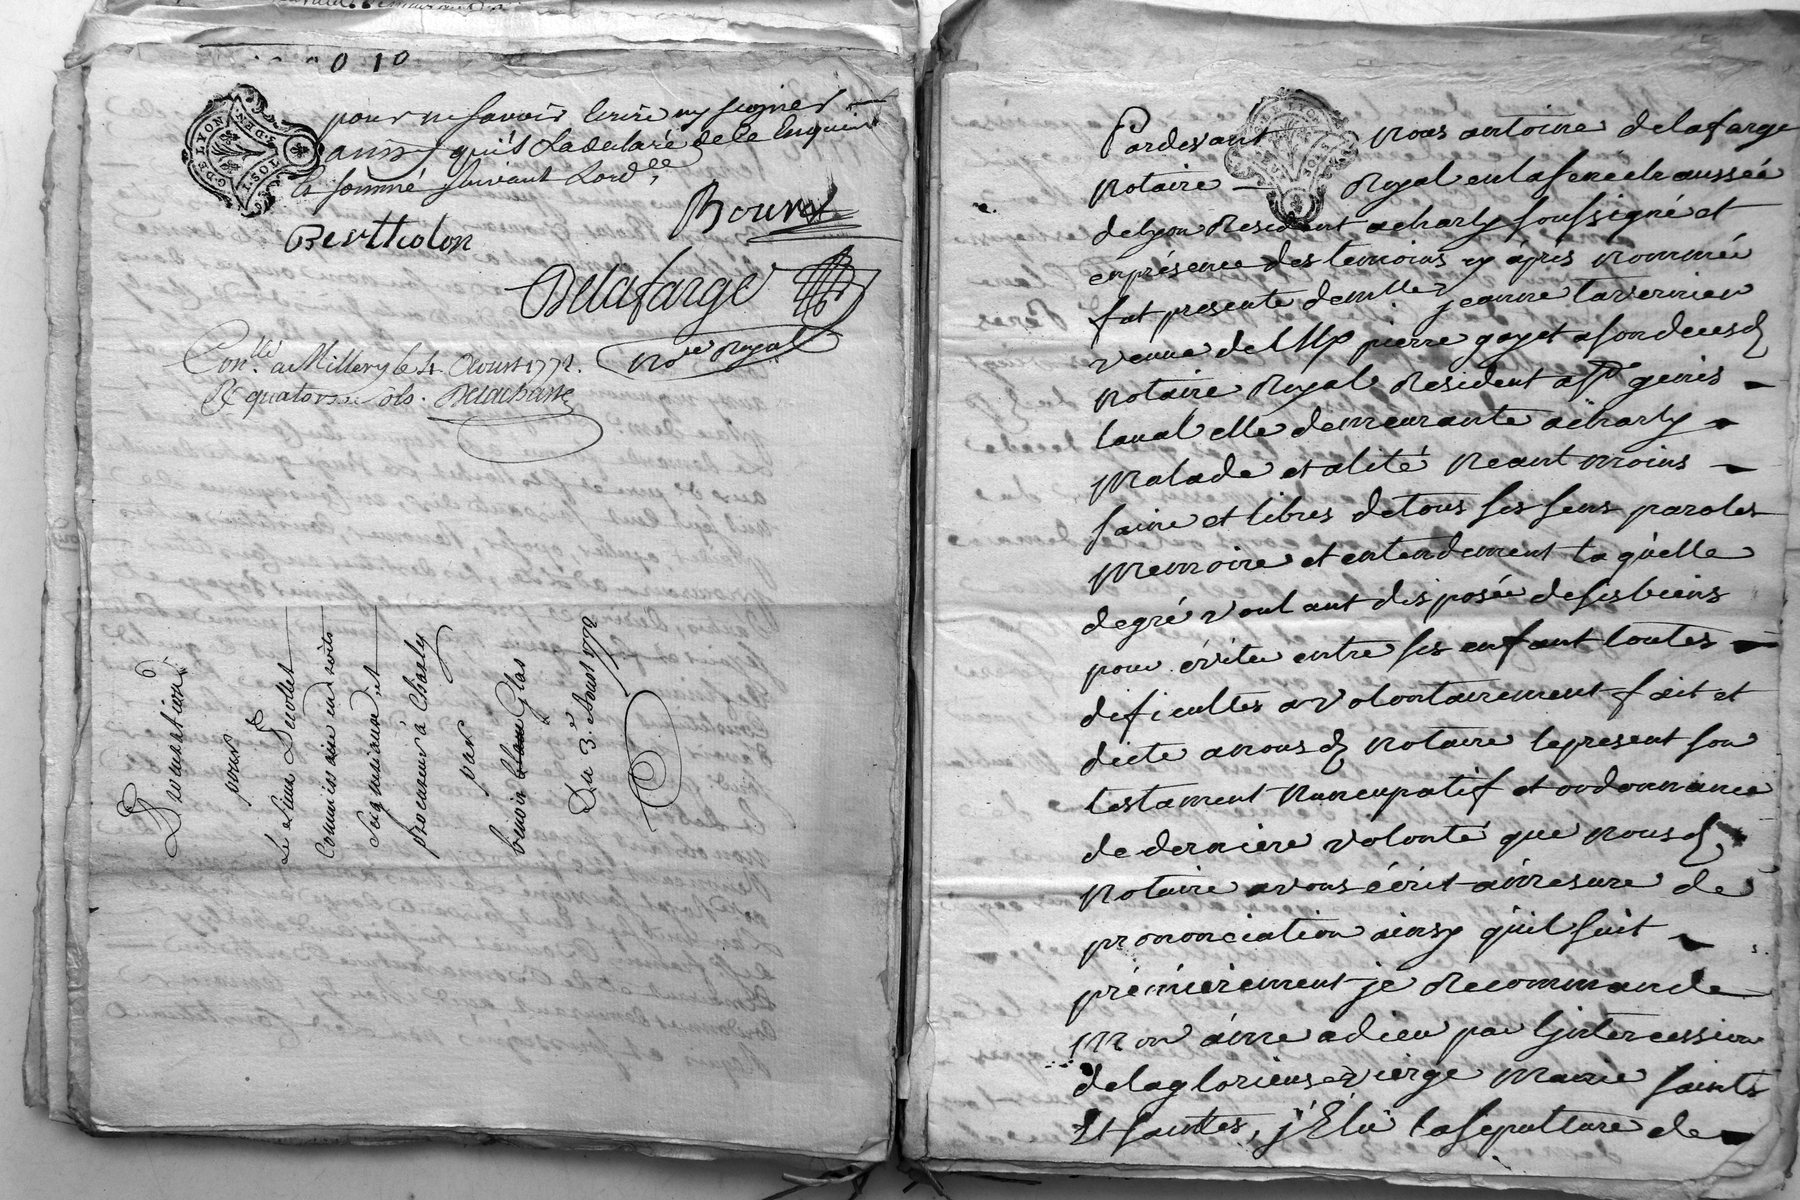 010
G. DE LYON
1. SOL
pour ne savoir écrire ny signer
ainsy qu'il a declaré de ce enquis
et sommé suivant l'ord.ce
Bertholon
Delafarge
No.re Royal
Con.llé a Millery le 4. Aoust 1772.
R. quatorze sols. Delachasse
pour
Le Sieur
Commissaire en droits
Seigneuriaux et
procureur à Charly
par
benoit Glas
Du 3.e Aoust 1772
G. DE LYON
Pardevant Nous antoine delafarge
Notaire Royal en la senechaussée
de lyon Resident a charly soussigné et
en présence des temoins cy après nommée
fut presente demlle jeanne tavernier
veuve de Me pierre gayet a son deces
Notaire Royal Resident a St genis
laval elle demeurante a charly
Malade et alité Neant moins
saine et libres de tous ses sens paroles
Memoire et entendement laquelle
de gré voulant disposée de ses biens
pour évite entre ses enfant toutes
dificultés a volontairement fait et
dicte a nous d. Notaire le present son
testament Nuncupatif et ordonnance
de derniere volonté que Nous d.
Notaire avons écrit a mesure de
prononciation ainsy qu'il suit
prémièrement je Recommande
Mon ame a dieu par l'intercession
de la glorieuse vierge Marie saints
Et saintes, j'Elie la sepulture de